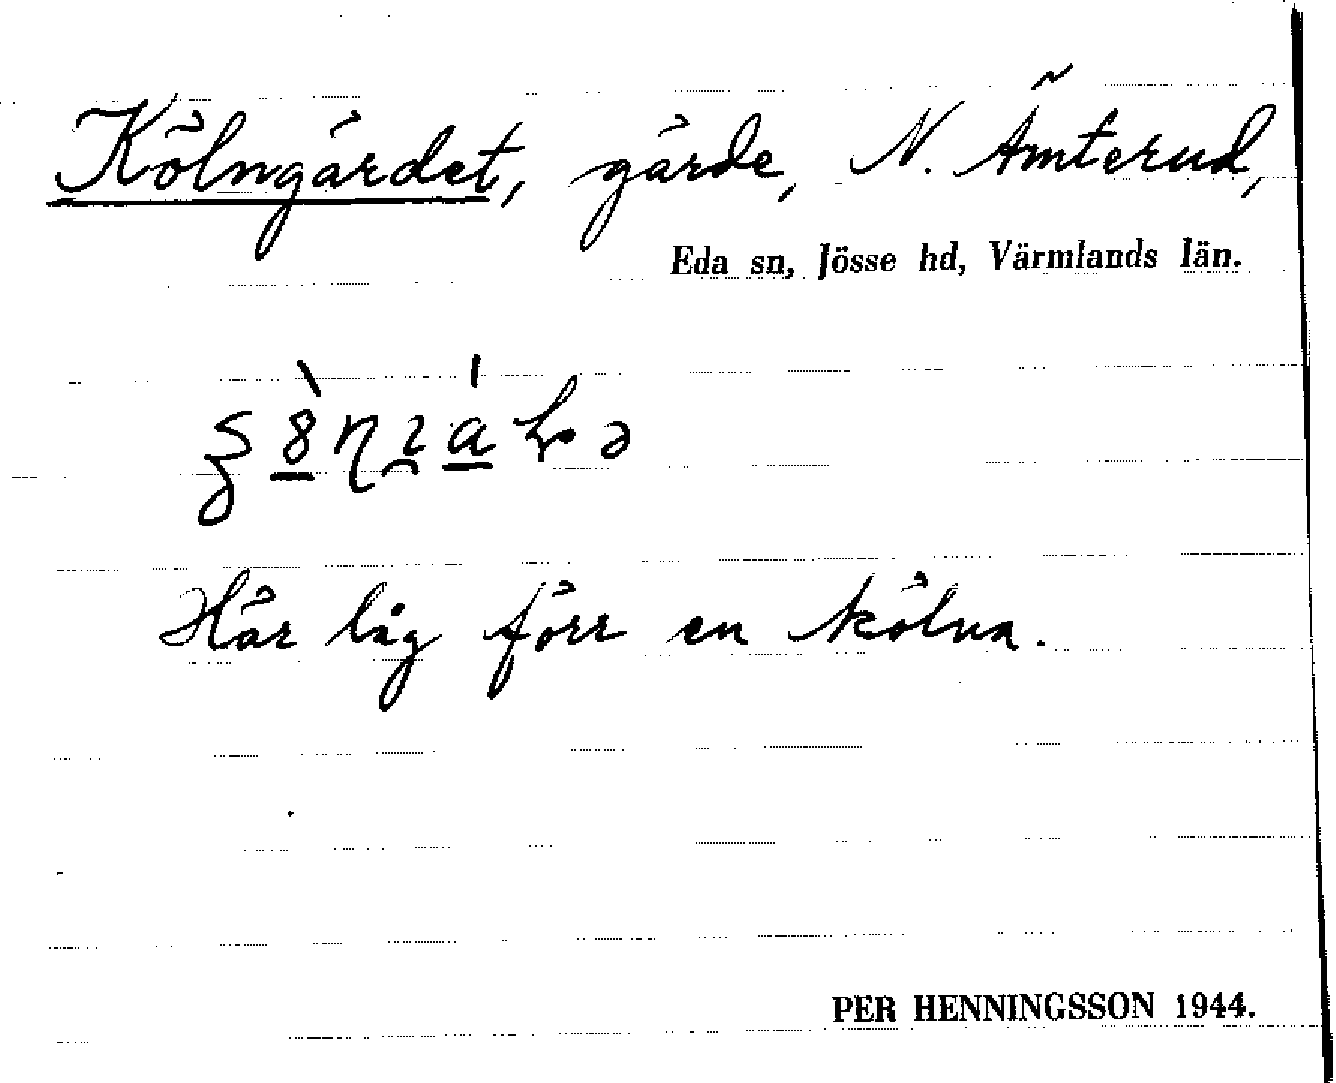 Kölngärdet, gärde, N. Ämterud,
Eda sn, Jösse hd, Värmlands län.
Här låg förr en kölna.
PER HENNINGSSON 1944.